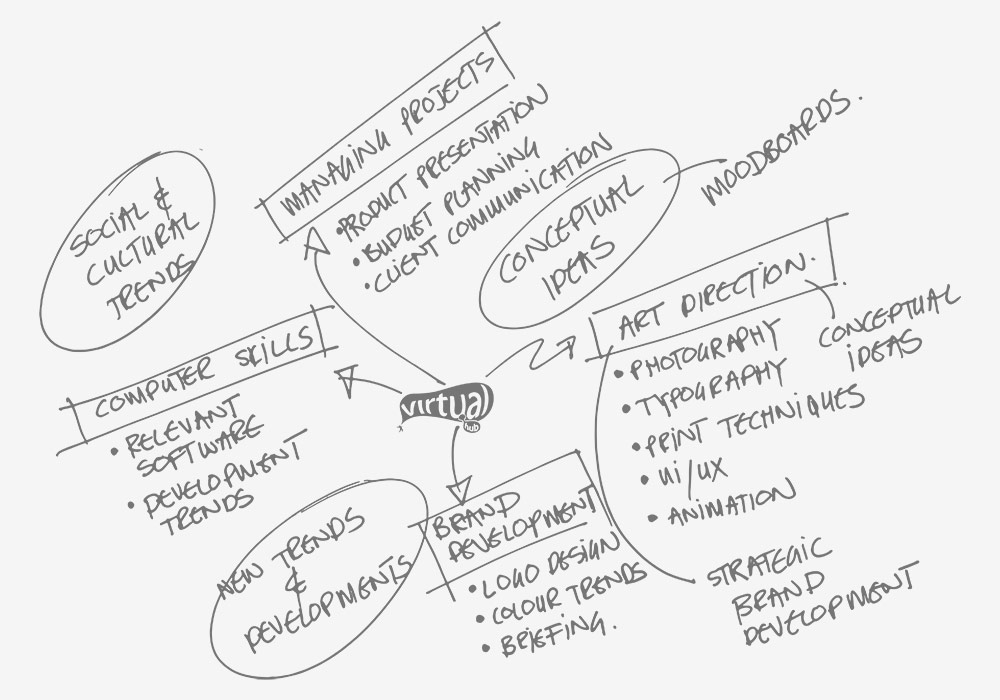 MANAGING PROJECTS
• PRODUCT PRESENTATION
• BUDGET PLANNING
• CLIENT COMMUNICATION
SOCIAL &
CULTURAL
TRENDS
CONCEPTUAL
IDEAS
MOODBOARDS.
ART DIRECTION.
• PHOTOGRAPHY
• TYPOGRAPHY
• PRINT TECHNIQUES
• UI/UX
• ANIMATION
CONCEPTUAL
IDEAS
COMPUTER SKILLS
• RELEVANT
SOFTWARE
• DEVELOPMENT
TRENDS
virtual
hub
NEW TRENDS
&
DEVELOPMENTS
BRAND
DEVELOPMENT
• LOGO DESIGN
• COLOUR TRENDS
• BRIEFING.
STRATEGIC
BRAND
DEVELOPMENT